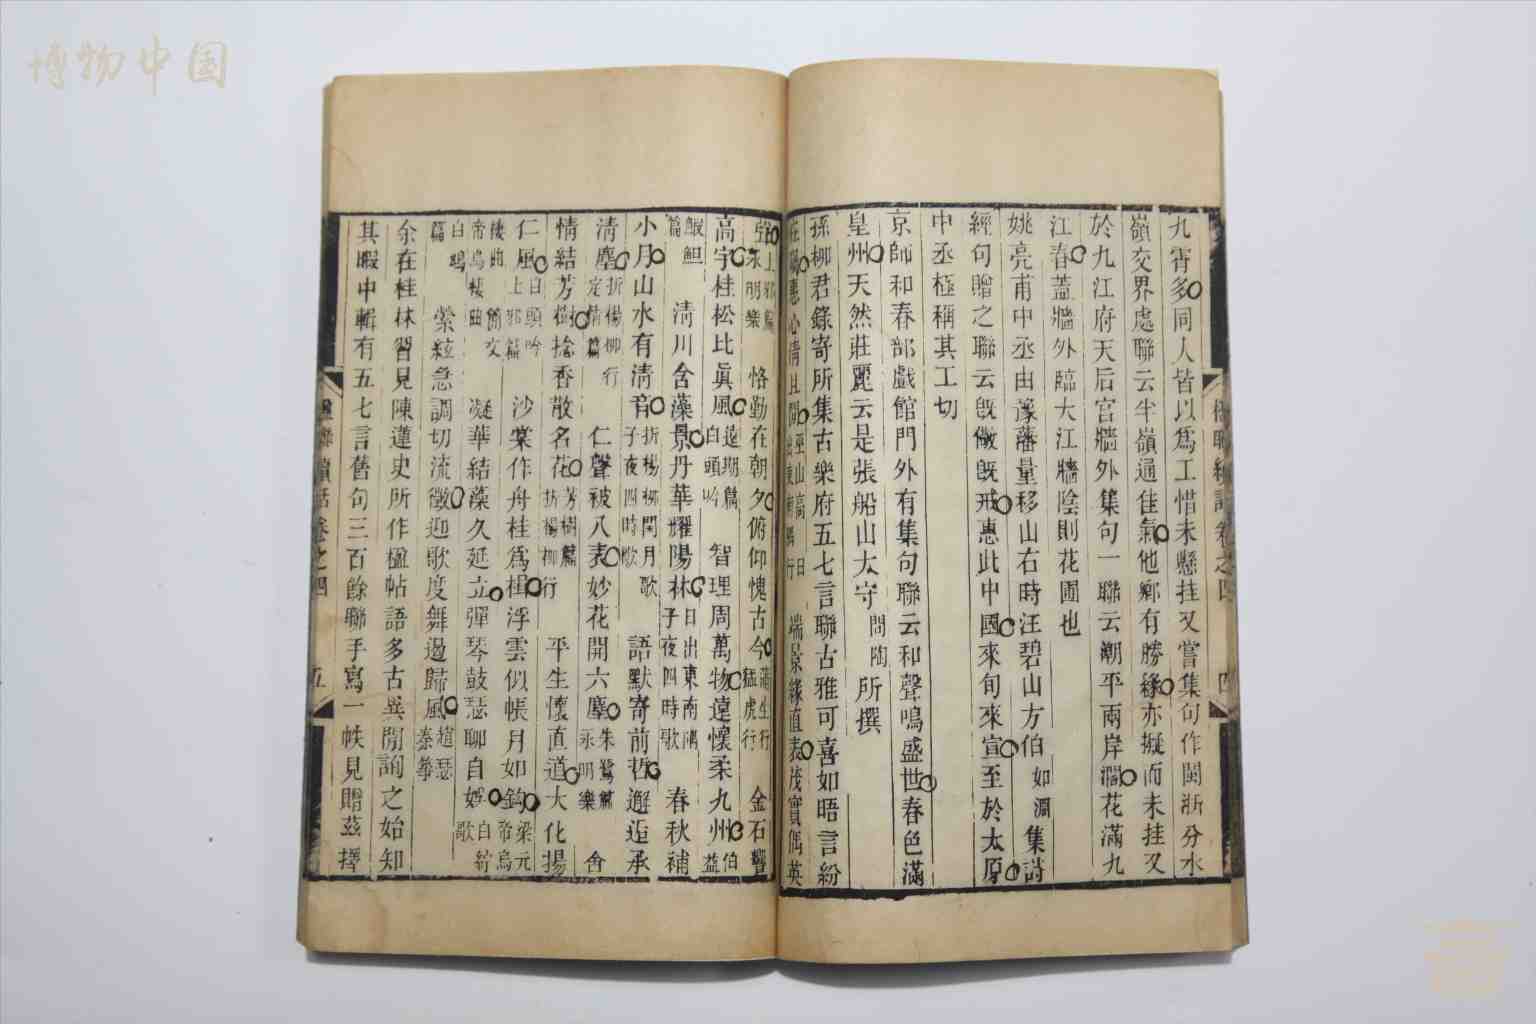 博物中国
九霄多同人皆以爲工惜未懸挂又嘗集句作閩浙分水
嶺交界處聯云半嶺通佳氣他鄉有勝緣亦擬而未挂又
於九江府天后宮牆外集句一聯云潮平兩岸濶花滿九
江春蓋牆外臨大江牆陰則花圃也
姚亮甫中丞由豫藩量移山右時汪碧山方伯如淵集詩
經句贈之聯云旣儆旣戒惠此中國來旬來宣至於太原
中丞極稱其工切
京師和春部戲館門外有集句聯云和聲鳴盛世春色滿
皇州天然莊麗云是張船山太守問陶所撰
孫柳君錄寄所集古樂府五七言聯古雅可喜如晤言紛
在矚惠心淸且閑巫山高日出東南隅行端景緣直表茂實偶英
聲上邪篇永明樂恪勤在朝夕俯仰愧古今蒲生行猛虎行金石響
高宇桂松比眞風遠期篇白頭吟智理周萬物遠懷柔九州伯益
篇鰕䱇淸川含藻景丹華耀陽林日出東南隅子夜四時歌春秋補
小月山水有淸音折楊柳閏月歌子夜四時歌語默寄前哲邂逅承
淸塵折楊柳行定情篇仁聲被八表妙花開六塵朱鷺篇永明樂含
情結芳樹捻香散名花芳樹篇折楊柳行平生懷直道大化揚
仁風白頭吟上邪篇沙棠作舟桂爲楫浮雲似帳月如鉤梁元帝烏
棲曲簡文帝烏棲曲凝華結藻久延立彈琴鼓瑟聊自娛白紵歌
白鳩篇縈絃急調切流徵迎歌度舞遏歸風趙瑟秦箏
余在桂林習見陳蓮史所作楹帖語多古異閒詢之始知
其暇中輯有五七言舊句三百餘聯手寫一帙見贈茲擇
楹聯續話卷之四 四
楹聯續話卷之四 五